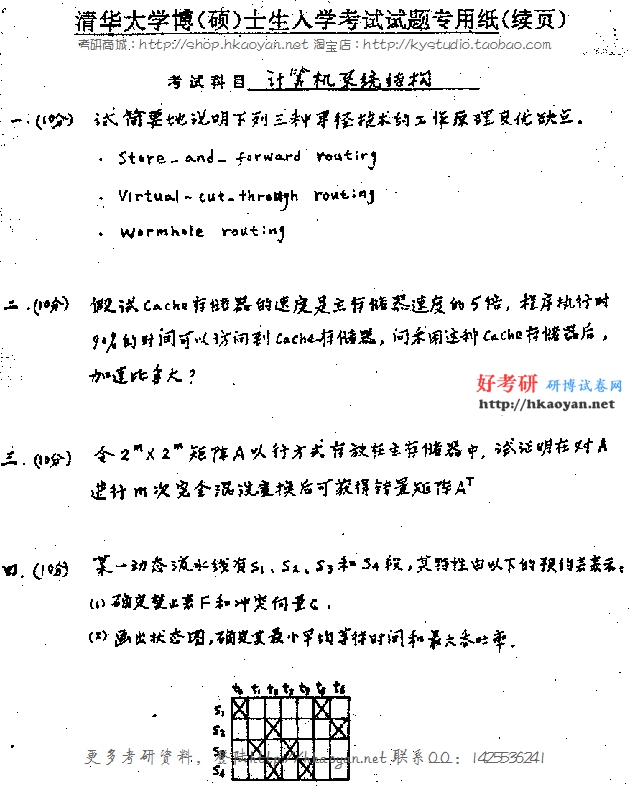 清华大学博(硕)士生入学考试试题专用纸(续页)
考研商城:http://shop.hkaoyan.net 淘宝店:http://kystudio.taobao.com
考试科目 计算机系统结构
一.(10分) 试简要地说明下列三种寻径技术的工作原理及优缺点。
· Store-and-forward routing
· Virtual-cut-through routing
· Wormhole routing
二.(10分) 假设Cache存储器的速度是主存储器速度的5倍,程序执行时
90%的时间可以访问到Cache存储器,问采用这种Cache存储器后,
加速比多大?
好考研 研博试卷网
http://hkaoyan.net
三.(10分) 令2^m×2^m矩阵A以行方式存放在主存储器中,试证明在对A
进行m次完全混洗变换后可获得转置矩阵A^T
四.(10分) 某一动态流水线有S1、S2、S3和S4段,其特性由以下的预约表表示:
(1) 确定禁止表F和冲突向量C,
(2) 画出状态图,确定其最小平均等待时间和最大吞吐率.
t0 t1 t2 t3 t4 t5 t6
S1
S2
S3
更多考研资料,登陆http://hkaoyan.net 联系QQ:1425536241
S4